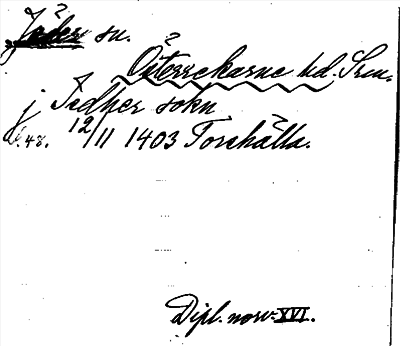 Jäder sn.
Österrekarne hd. Srm.
j Jedher sokn
48. 12/11 1403 Torshälla.
Dipl. norv. XVI.